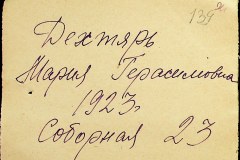 139
Дехтярь
Мария Герасимовна
1923г
Соборная 23